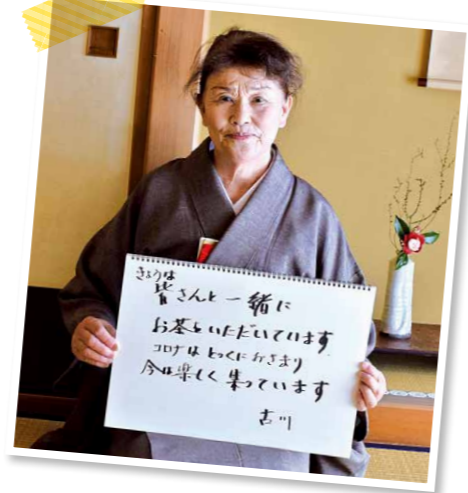 きょうは
皆さんと一緒に
お茶をいただいています
コロナはとっくにおさまり
今は楽しく集っています
古川